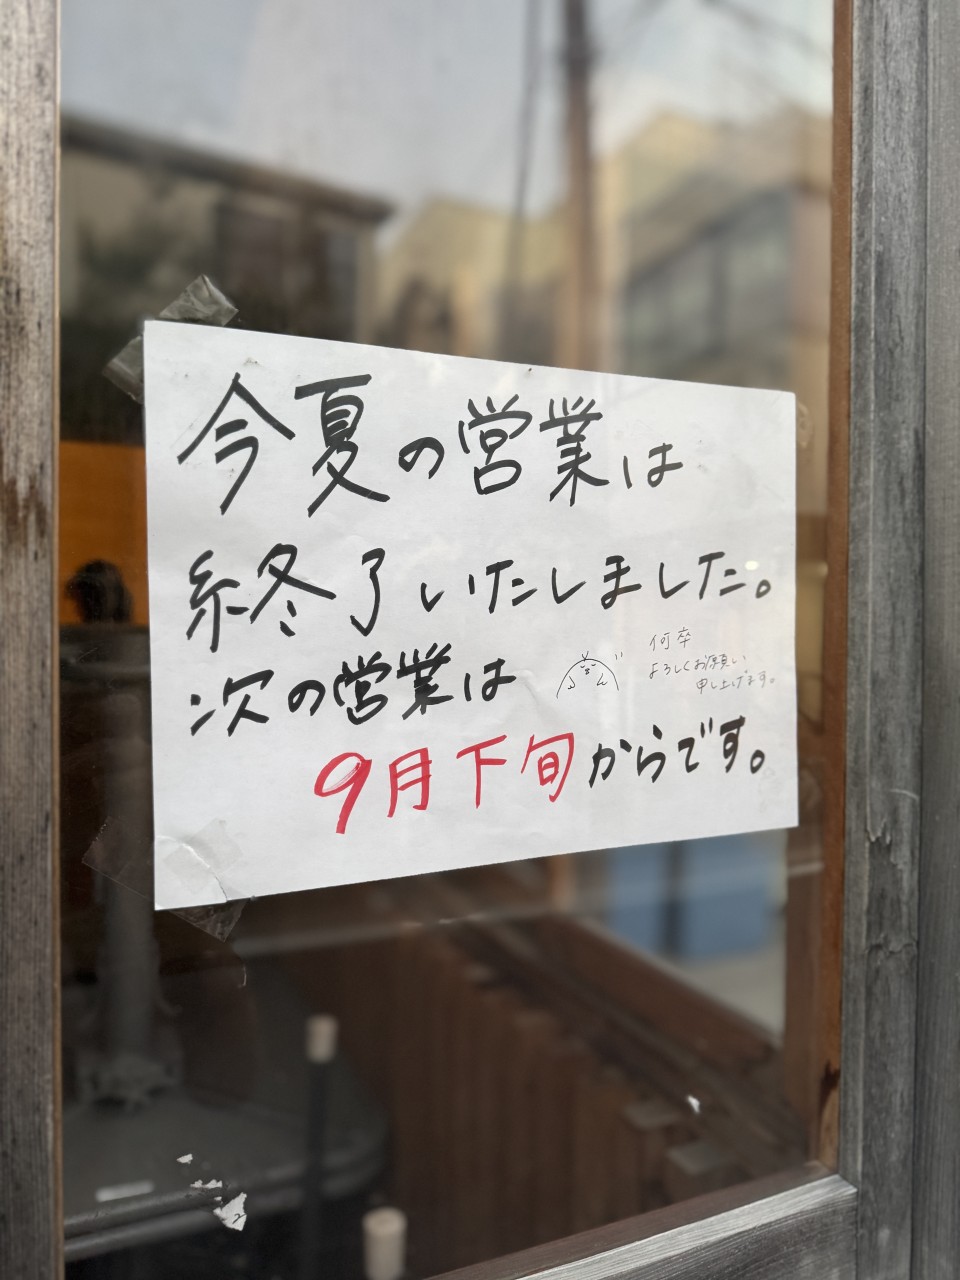 今夏の営業は
終了いたしました。
次の営業は
何卒
よろしくお願い
申し上げます。
9月下旬からです。